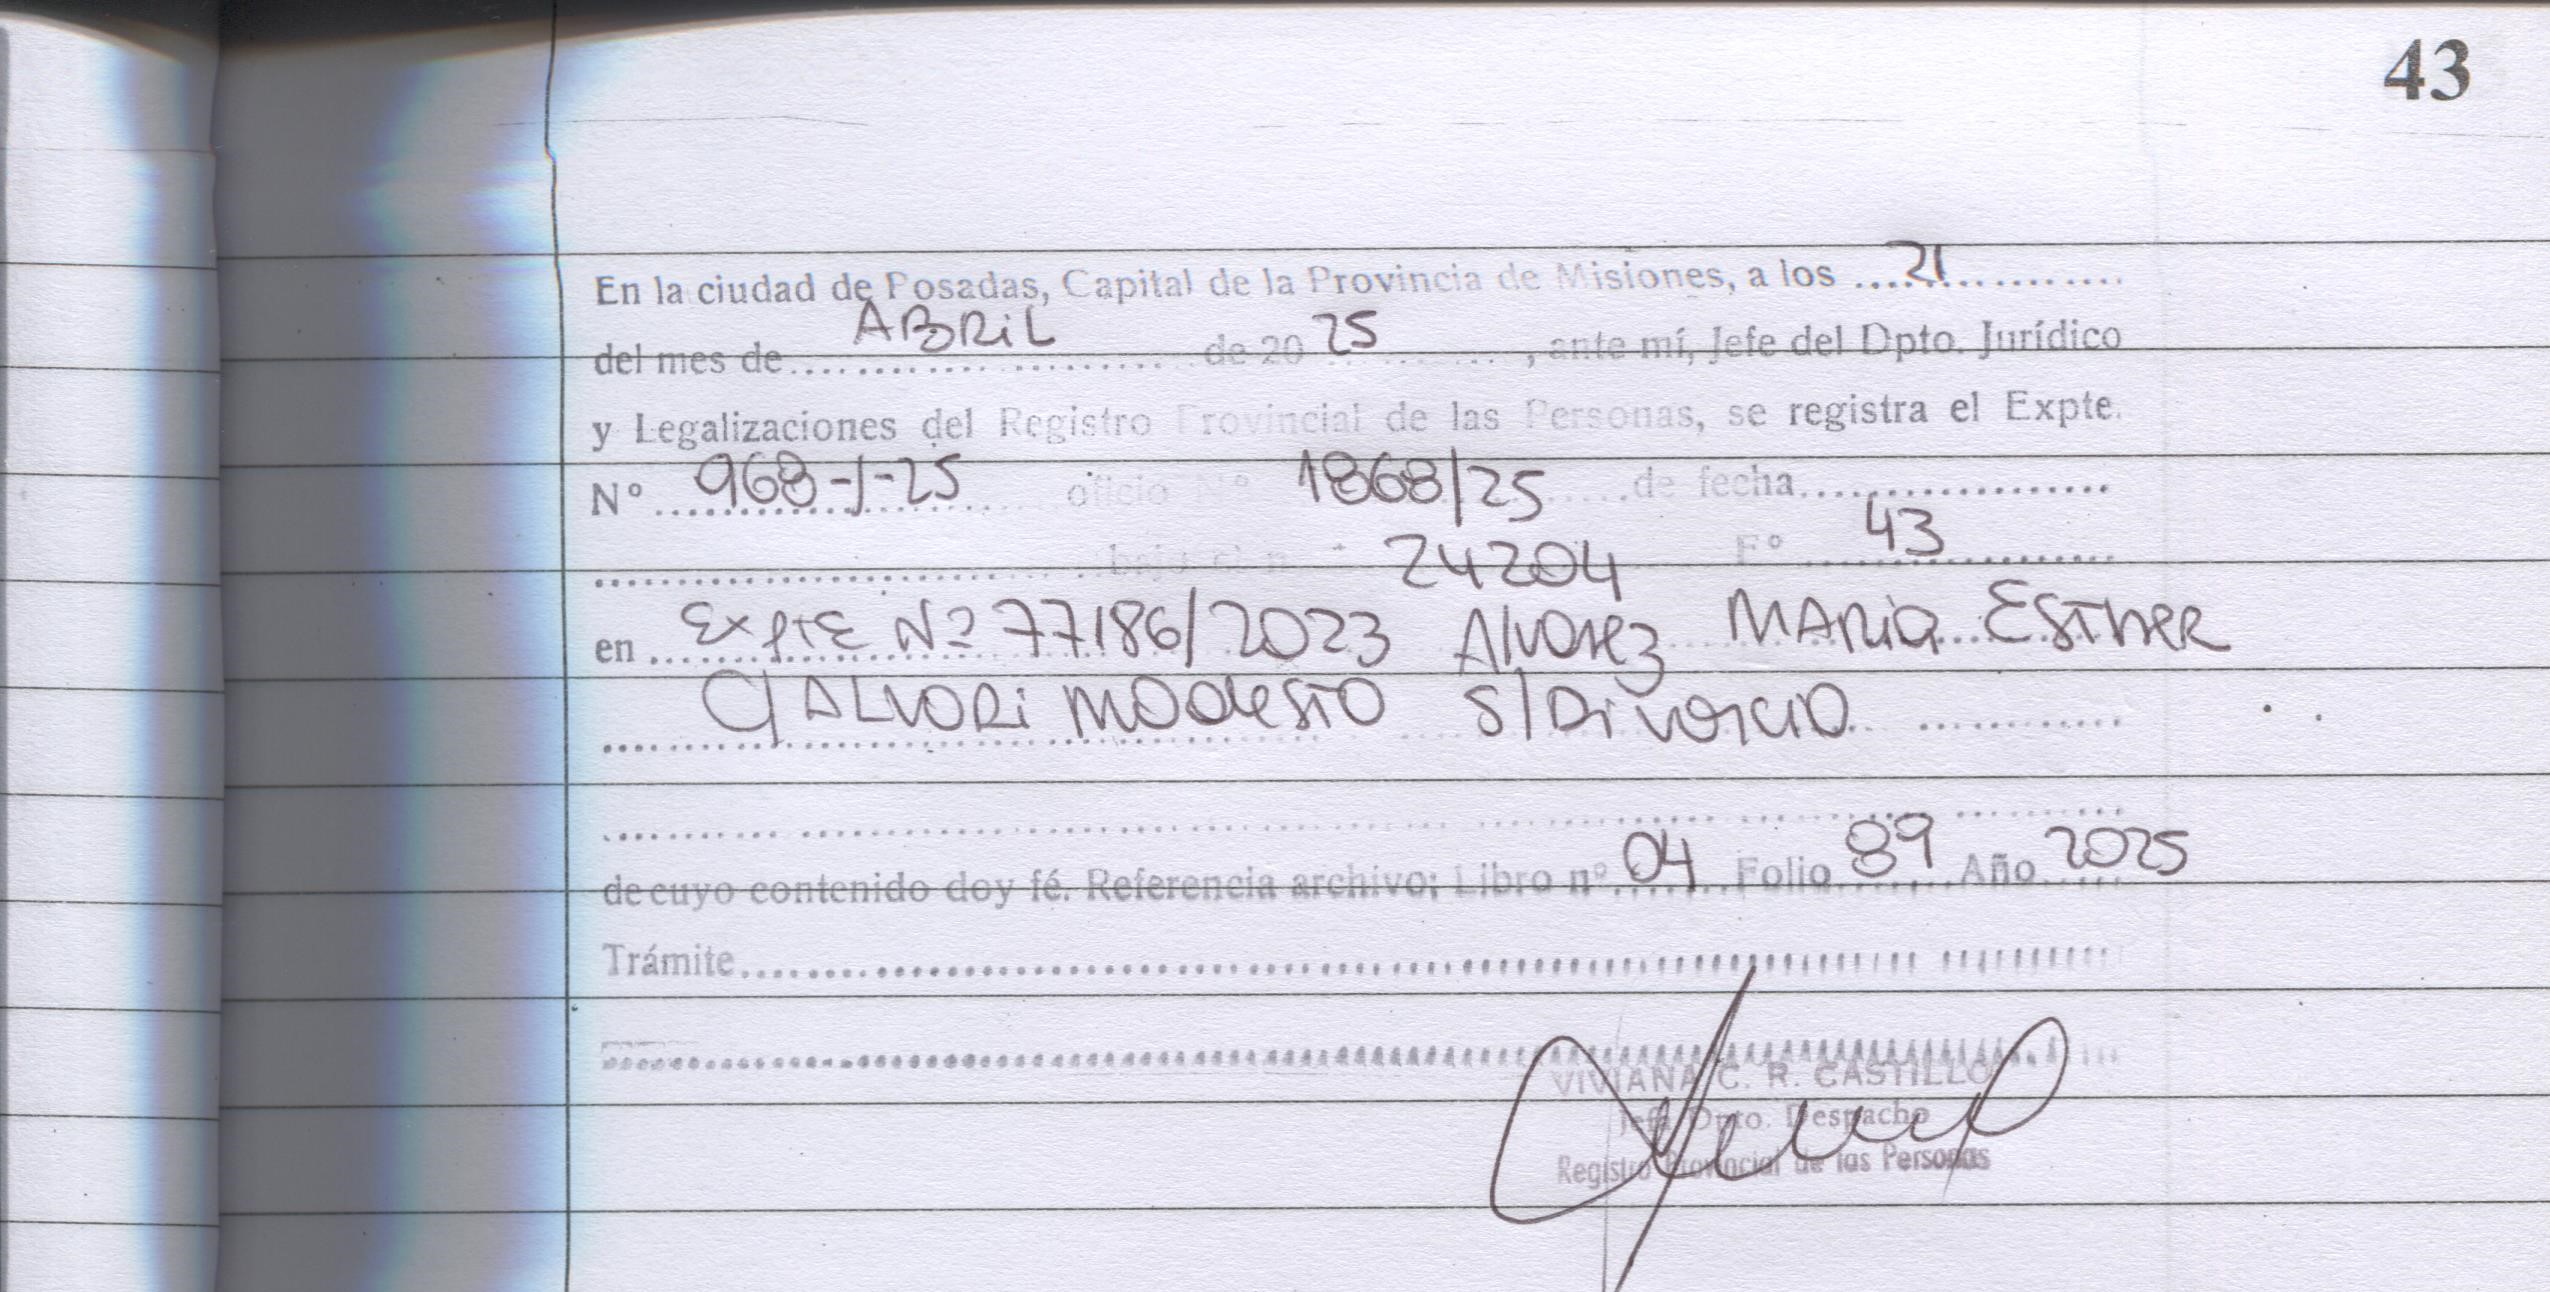 43
En la ciudad de Posadas, Capital de la Provincia de Misiones, a los ....21............
del mes de ABRIL de 2025, ante mí, Jefe del Dpto. Jurídico
y Legalizaciones del Registro Provincial de las Personas, se registra el Expte.
Nº 968-J-25 oficio Nº 1868/25 de fecha..................
bajo el n 24204 Fº 43
en Expte Nº 77186/2023 Alvarez MARia ESTHER
C/ ALVORi MOdesto S/Divorcio
de cuyo contenido doy fé. Referencia archivo; Libro nº 04 Folio 89 Año 2025
Trámite..................
VIVIANA C. R. CASTILLO
Jefa Dpto. Despacho
Registro Provincial de las Personas